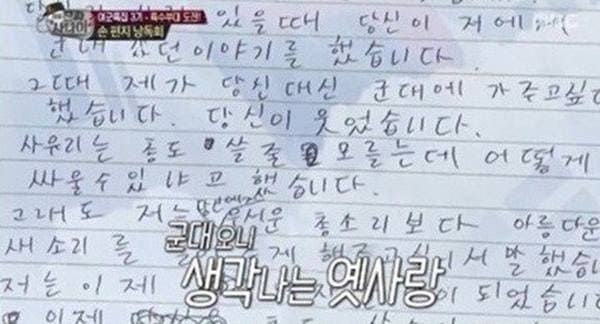 여군특집 3기 - 특수부대 도전!
손 편지 낭독회
있을때 당신이 저에게
군대 갔던 이야기를 했습니다.
그때 제가 당신대신 군대에 가주고싶
했습니다. 당신이 웃었습니다.
사유리는 총도 쏠 줄 모르는데 어떻게
싸울수 있냐고 했습니다.
그래도 저는 총소리보다 아름다운
새소리를 말했습
저는 이제 이 되었습니다
이제
군대 오니
생각나는 옛사랑